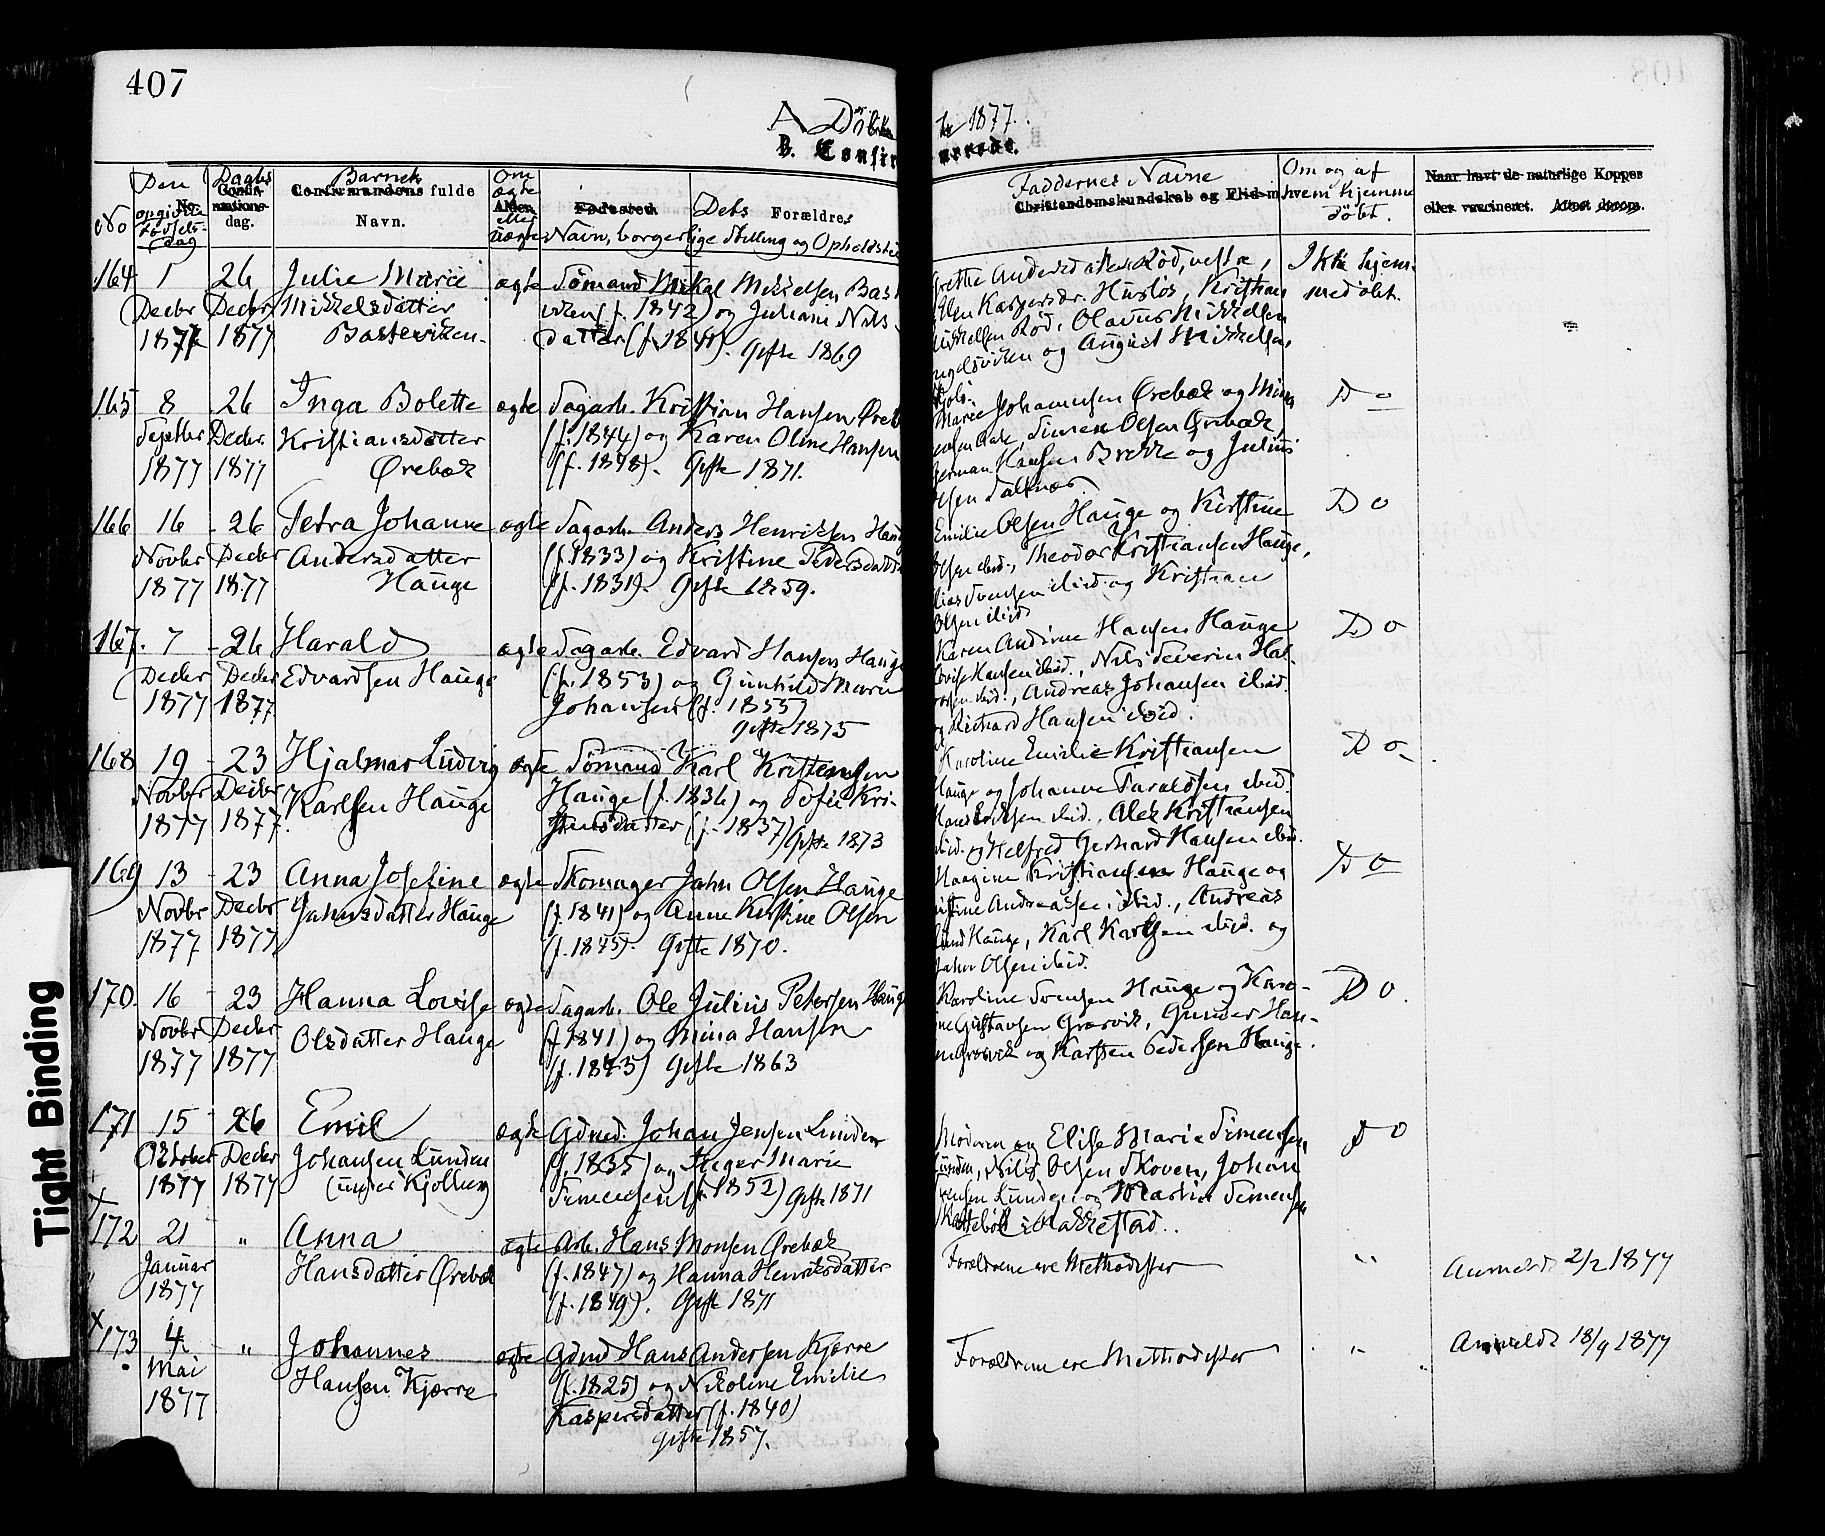 407
A Døbte 1877.
B. Confirmerede.
No
Den opgivne Fødsels-dag
Daabs dag.
Barnets fulde Navn.
Om ægte eller uægte
Dets Forældres
Navn, borgerlige Stilling og Opholdsted
Faddernes Navne
Christendomskundskab og Flid
Om og af hvem hjemme døbt.
Naar havt de naturlige Kopper
eller vaccineret. Attest derom.
164 1 26 Julie Marie ægte Sømand Mikal Mikkelsen Bast
Decbr Decbr Mikkelsdatter viken (f. 1842) og Juliane Nils-
1877 1877 Basteviken. datter (f. 1841). Gifte 1869
Grethe Andersdatter Rød,
Ellen Kaspersdr. Husløs, Kristian
Mikkelsen Rød, Olavus Mikkelsen
og August Mikkelsen,
Ikke hjem-
medøbt.
165 8 26 Inga Bolette ægte Sagarb. Kristian Hansen Øreb
Septbr Decbr. Kristiansdatter (f. 1844) og Karen Oline Hansen
1877 1877 Ørebæk (f. 1848). Gifte 1871.
Marie Johannesen Ørebæk og Mina
Simen Olsen Ørebæk,
Herman Hansen Brekke og Julius
Olsen Saltnæs.
Do
166 16 - 26 Petra Johanne ægte Sagarb. Anders Henriksen Haug
Novbr Decbr Andersdatter (f. 1833) og Kristine Pedersdatter
1877 1877 Hauge (f. 1831). Gifte 1859.
Emilie Olsen Hauge og Kirstine
Olsen ibid., Theodor Kristiansen Hauge,
Svensen ibid. og Kristian
Olsen ibid
Do
167. 7 - 26 Harald ægte Sagarb. Edvard Hansen Hauge
Decbr Decbr Edvardsen Hauge (f. 1853) og Gunhild Marie
1877 1877 Johansen (f. 1855)
Gifte 1875
Karen Andrine Hansen Hauge
Hansen ibid., Nils Severin Hal-
ibid., Andreas Johansen ibid.
og Richard Hansen ibid.
Do
168 19 - 23 Hjalmar Ludvig ægte Sømand Karl Kristensen
Novbr Decbr Karlsen Hauge Hauge (f. 1836) og Sofie Kri-
1877 1877. stensdatter (f. 1837) Gifte 1873
Karoline Emilie Kristiansen
Hauge og Johanne Taraldsen ibid.
Hans Eriksen ibid., Alex Kristiansen
ibid. og Helfred Gerhard Hansen ibid.
Do
169 13 - 23 Anna Josefine ægte Skomager Jahn Olsen Hauge
Novbr Decbr Jahnsdatter Hauge (f. 1841) og Anne Kristine Olsen
1877 1877 (f. 1845). Gifte 1870.
Haagine Kristiansen Hauge og
Andreassen ibid., Andreas
Lund Hauge, Karl Karlsen ibid. og
Jahn Olsen ibid.
Do
170 16 - 23 Hanna Lovise ægte Sagarb. Ole Julius Petersen Haug
Novbr Decbr Olsdatter Hauge (f. 1841) og Mina Hansen
1877 1877 (f. 1843) Gifte 1863
Karoline Svensen Hauge og Karo-
ine Gustavsen Græsvik, Gunder Han-
Græsvik og Karsten Pedersen Hauge.
Do.
171 15 - 26 Emil ægte Gdmd. Johan Jensen Lunden
Oktober Decbr Johansen Lunden (f. 1835) og Inger Marie
1877 1877 (under Kjølberg) Simensen (f. 1852) Gifte 1871
Moderen og Elise Marie Simensen,
Lunden, Nils Olsen Skoven, Johan
Jensen Lunden og Martin Simensen
i Rakkestad.
Do
172 21 " Anna ægte Arb. Hans Monsen Ørebæk
Januar Hansdatter Ørebæk (f. 1847) og Hanna Henriksdatter
1877 (f. 1849). Gifte 1871
Forældrene ere Methodister " Anmeldt 2/2 1877
173 4 " Johannes ægte Gdmd Hans Andersen Kjærre
Mai Hansen Kjærre (f. 1825) og Nikoline Emilie
1877 Kaspersdatter (f. 1840)
Gifte 1857.
Forældrene ere Methodister " Anmeldt 18/9 1877
Tight Binding